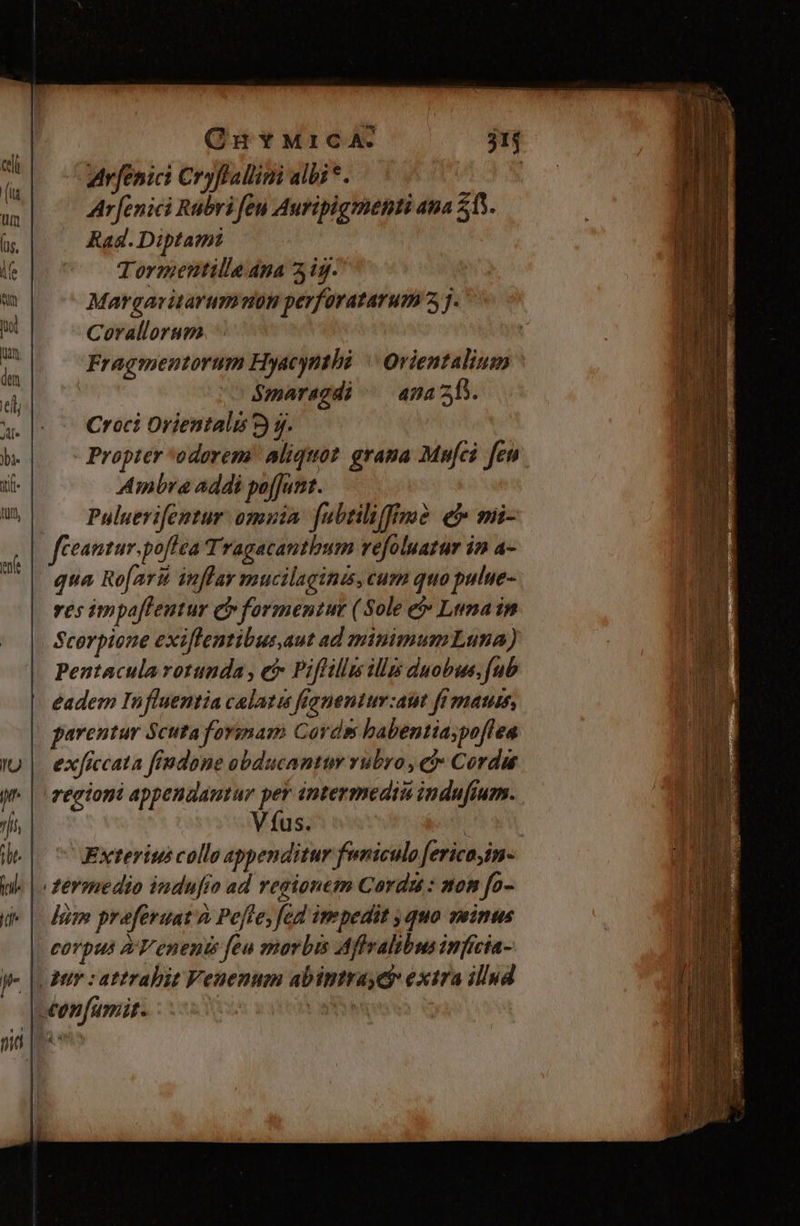 CHYMICA. 315
Arſenici Cryſtallini albi*.
Arſenici Rubri ſeu Auripigmenti ana ℥ß.
Rad. Diptami
Tormentillæ ana ʒ iij.
Margaritarum non perforatarum ʒ j.
Corallorum
Fragmentorum Hyacynthi Orientalium
Smaragdi ana ʒß.
Croci Orientalis ℈ ij.
Propter odorem aliquot grana Muſci ſeu
Ambræ addi poſſunt.
Pulueriſentur omnia ſubtiliſſimè & mi-
ſceantur.poſtea Tragacanthum reſoluatur in a-
qua Roſarũ inſtar mucilaginis, cum quo pulue-
res impaſtentur & formentur (Sole & Luna in
Scorpione exiſtentibus,aut ad minimum Luna)
Pentacula rotunda, & Piſtillis illis duobus, ſub
eadem Influentia cælatis ſignentur:aut ſi mauis,
parentur Scuta formam Cordis habentia;poſtea
exſiccata ſindone obducantur rubro, & Cordis
regioni appendantur per intermediũ induſium.
Vſus.
Exterius collo appenditur funiculo ſerico,in-
termedio induſio ad regionem Cordis : non ſo-
lùm præſeruat à Peſte, ſed impedit , quo minus
corpus à Venenis ſeu morbis Aſtralibus inficia-
tur : attrahit Venenum abintra,& extra illud
conſumit.